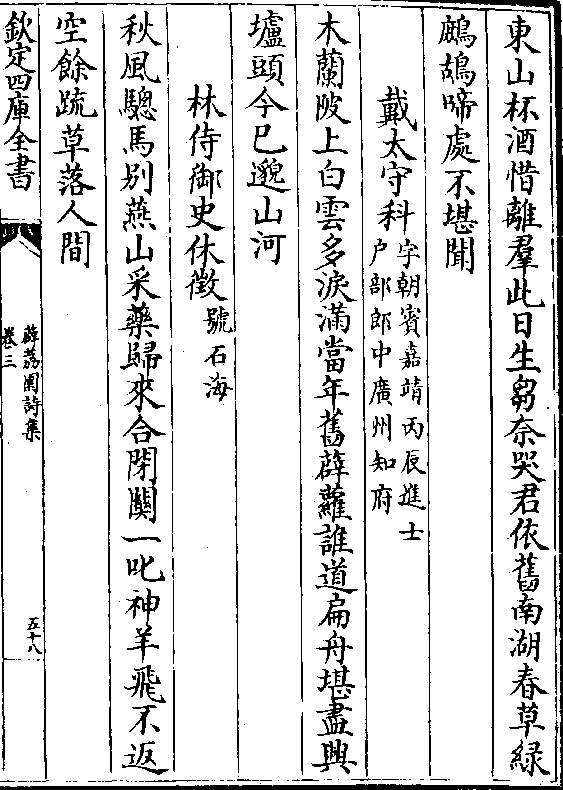 東山杯酒惜離羣此日生芻奈哭君依舊南湖春草綠
鷓鴣啼處不堪聞
戴太守科字朝賓嘉靖丙辰進士
戶部郎中廣州知府
木蘭陂上白雲多淚滿當年舊薜蘿誰道扁舟堪盡興
壚頭今已邈山河
林侍御史休徵號石海
秋風驄馬別燕山采藥歸來合閉關一叱神羊飛不返
空餘疏草落人間
欽定四庫全書
薜荔園詩集
卷三
五十八